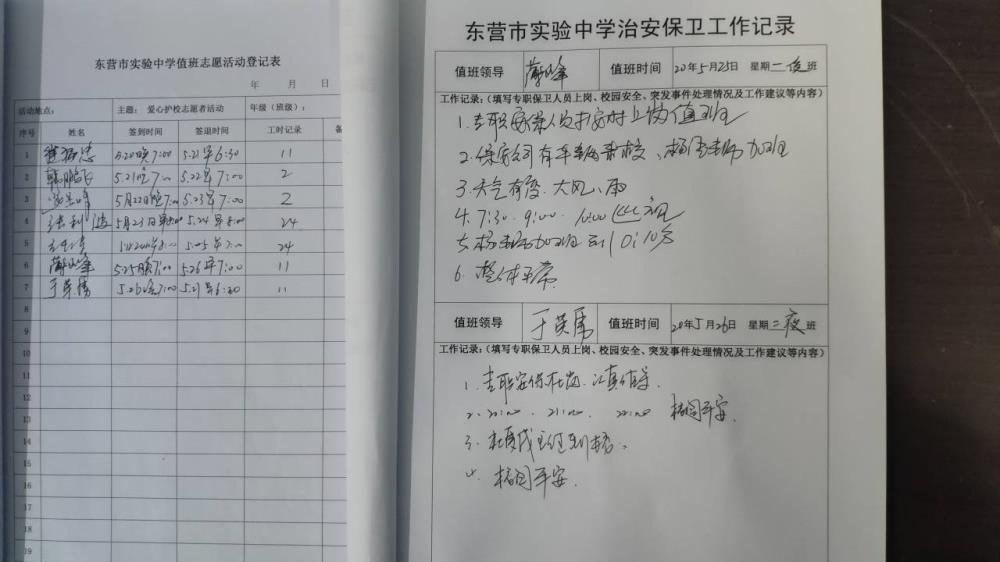 东营市实验中学值班志愿活动登记表
年 月 日
活动地点： 主题： 爱心护校志愿者活动 年级（班级）：
序号 姓名 签到时间 签退时间 工时记录 备
1 5.20晚7:00 5.21早6:30 11
2 韩鹏飞 5.21晚7:00 5.22早7:00 2
3 5月22日晚7:00 5.23早7:00 2
4 5月23日早8:00 5.24早8:00 24
5 24
6 5.25晚7:00 5.26早7:00 11
7 于英勇 5.26晚7:00 5.27早6:30 11
8
9
10
11
12
13
14
15
16
17
18
19
东营市实验中学治安保卫工作记录
值班领导 值班时间 20年5月25日 星期一夜班
工作记录：（填写专职保卫人员上岗、校园安全、突发事件处理情况及工作建议等内容）
1.专职安保人员按时上岗值班
2.保安公司有车辆来校、杨 老师加班
3.天气有变、大风、雨
4. 7:30. 9:00. 10:00 巡视
5.杨 老师加班到10:10分
6.整体平常
值班领导 于英勇 值班时间 20年5月26日 星期二夜班
工作记录：（填写专职保卫人员上岗、校园安全、突发事件处理情况及工作建议等内容）
1.专职安保在岗.认真值守.
2. 20:00. 21:00. 22:00 校园平安.
3.
4. 校园平安.